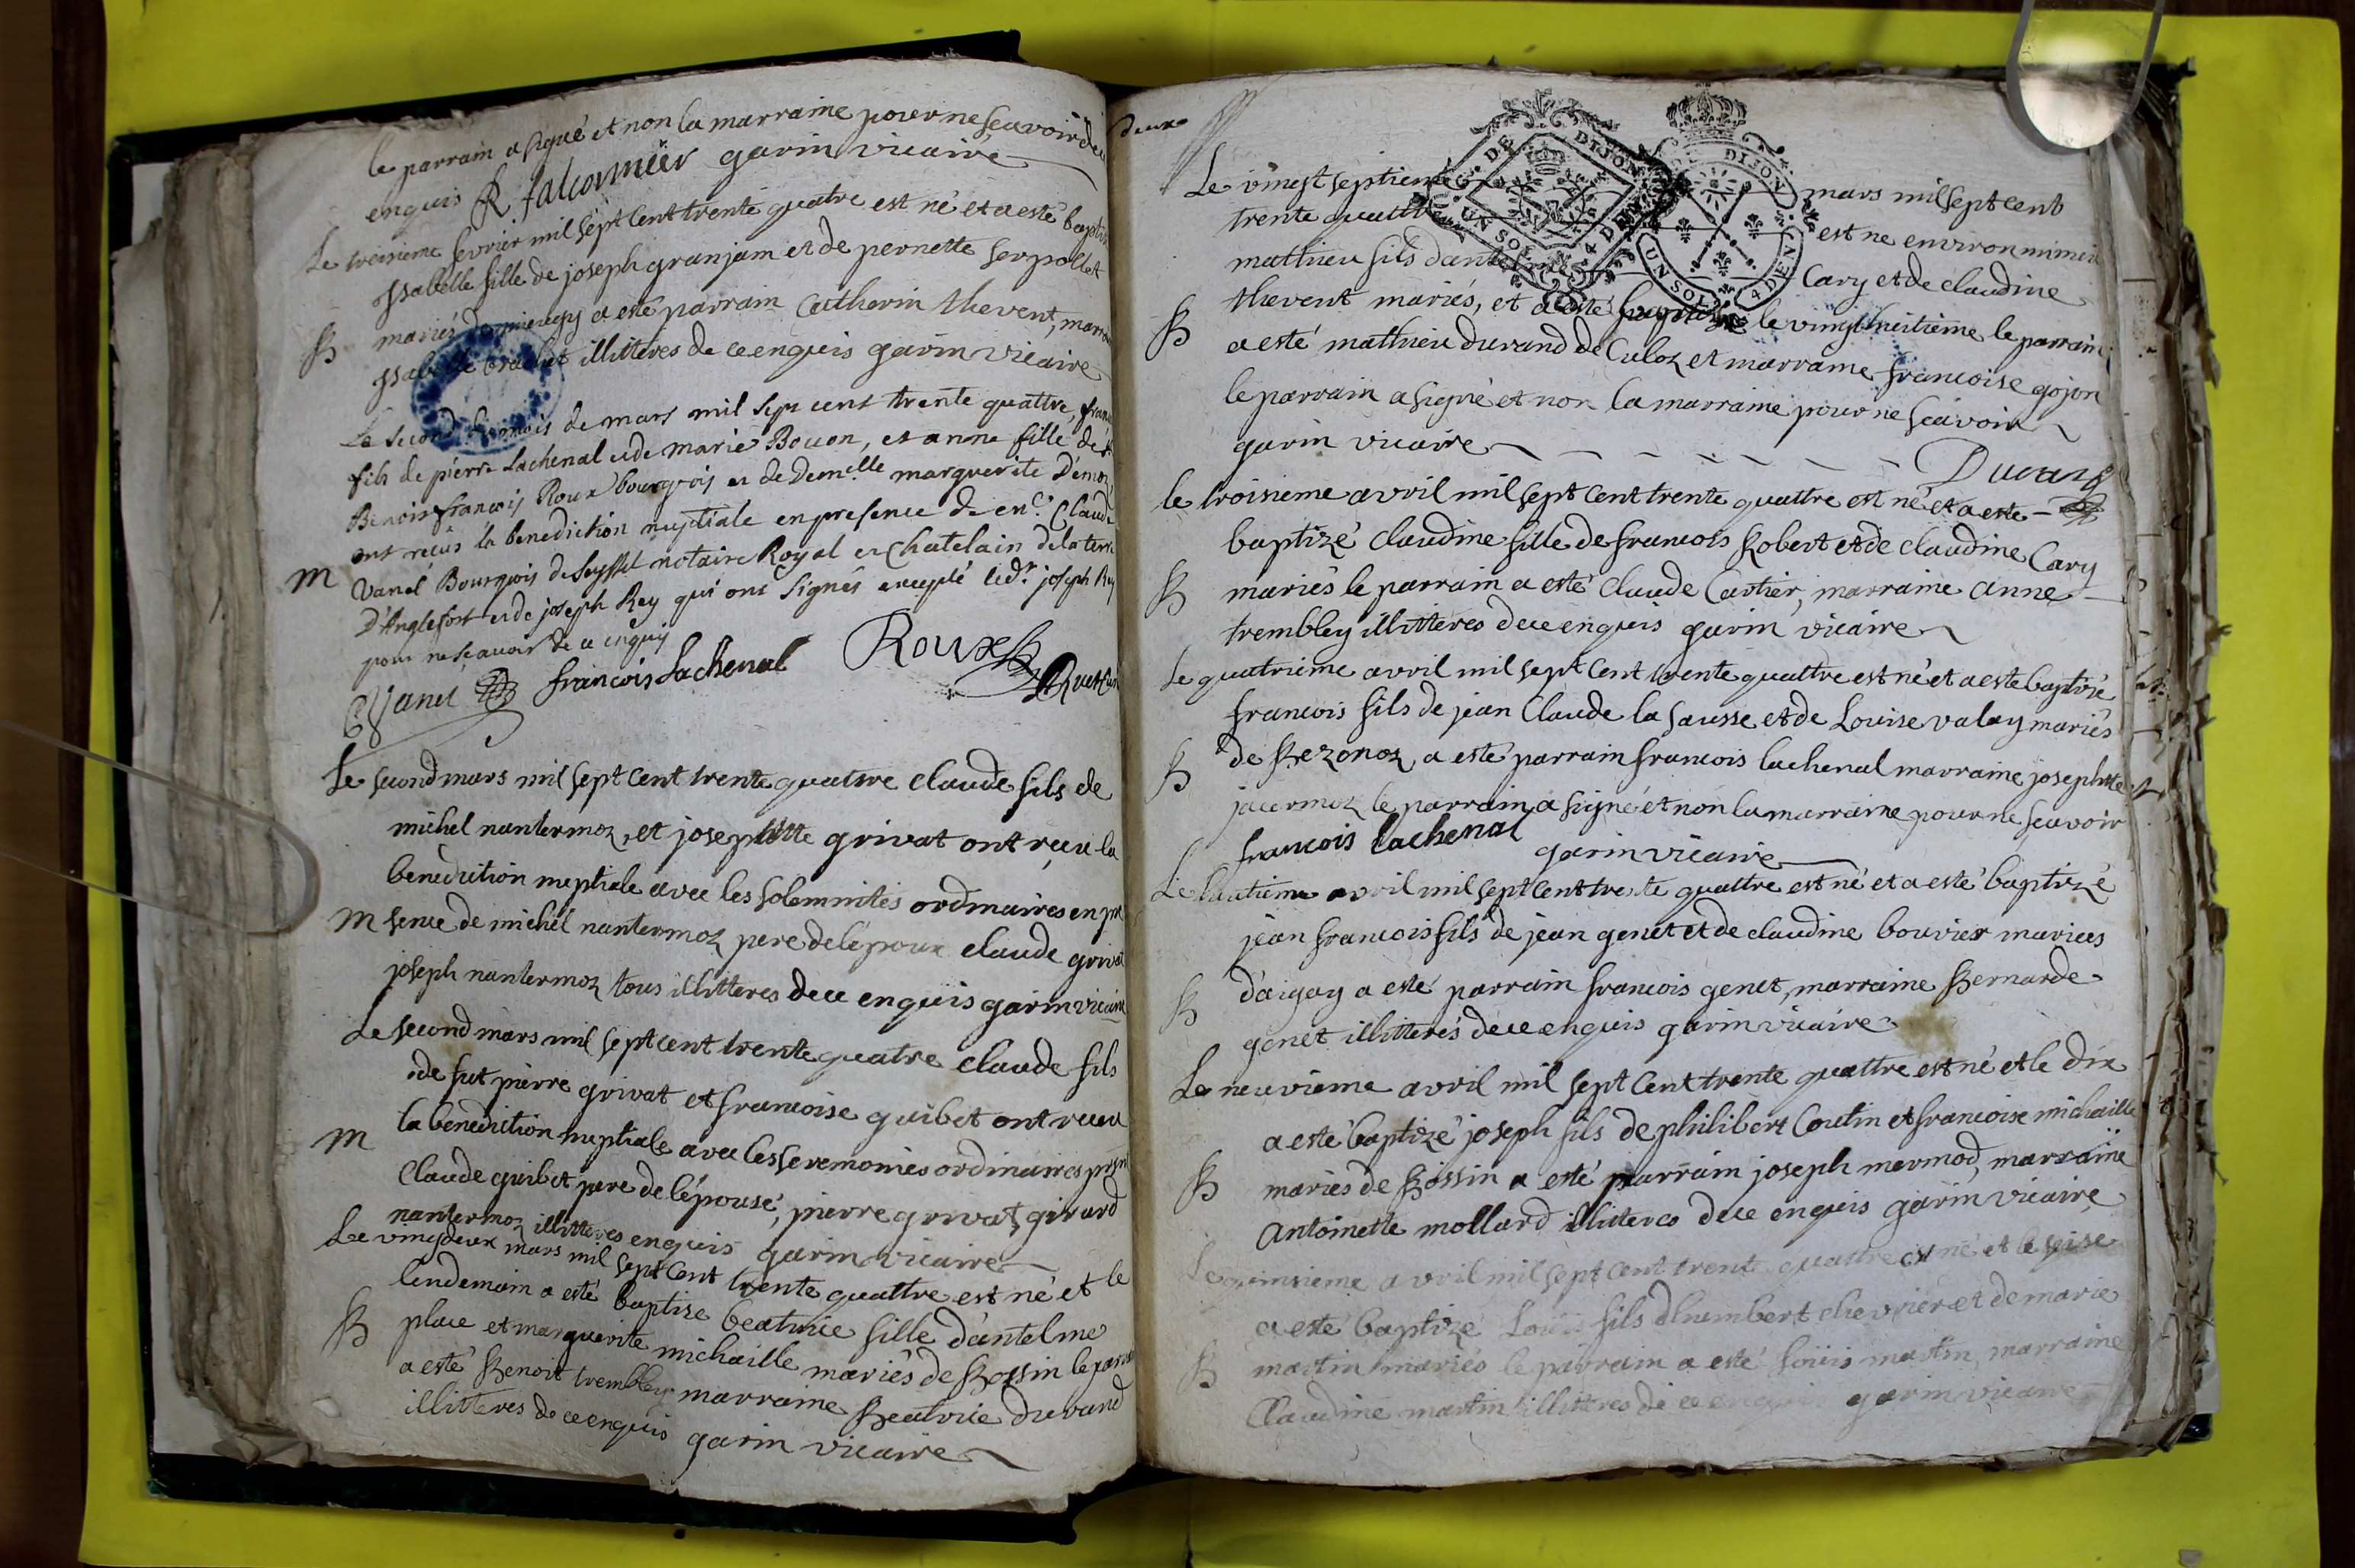 le parrain a signé et non la marraine pour ne scavoir de ce
enquis R falconnier garin vicaire
Le treisieme fevrier mil sept cent trente quatre est né et a esté baptisé
Isabelle fille de joseph granjam et de pernette serpollet
B mariés a esté parrain Catherin thevent, marraine
Isabelle illitteres de ce enquis garin vicaire
Le second du mois de mars mil sept cent trente quattre, francois
fils de pierre Lachenal et de marie Bouon, et anne fille de
Benoit françois Roux bourgeois et de Demelle marguerite
ont reçus la benediction nuptiale en presence de Claude
M Vanel Bourgeois de Seyssel notaire Royal et Chatelain de la terre
D'Anglefort et de joseph Rey qui ont signés excepté led.r joseph Rey
pour ne scavoir de ce enquis
Vanel francois Lachenal Roux
Le second mars mil sept cent trente quattre claude fils de
michel nantermoz, et josephtte grivat ont reçeu la
benediction nuptiale avec les solemnités ordinaires en pre
M sence de michel nantermoz pere de lépoux claude grivat
joseph nantermoz tous illitteres de ce enquis garin vicaire
Le second mars mil sept cent trente quatre claude fils
de fut pierre grivat et francoise guibet ont receu
M la benediction nuptiale avec les seremonies ordinaires
Claude guibet pere de lépouse, pierre grivat, girard
nantermoz illitteres enquis garin vicaire
Le vingt deux mars mil sept cent trente quattre est né et le
lendemain a esté baptise beatrice fille d'antelme
B place et marguerite michaille mariés de Bossin le parrain
a esté Benoit trembley marraine Beatrice durand
illitteres de ce enquis garin vicaire
Le vingt septieme mars mil sept cent
trente quattre est ne environ
mathieu fils dantelme Cary et de claudine
thevent mariés, et a esté baptizé le vingt huitième le parrain
B a esté mathieu durand de Culoz et marraine francoise gojon
le parrain a signé et non la marraine pour ne scavoir
garin vicaire Durand
le troisieme avril mil sept cent trente quattre est né et a esté
baptizé claudine fille de francois Robert et de claudine Cary
B mariés le parrain a esté Claude Cartier, marraine anne
trembley illitteres de ce enquis garin vicaire
Le quatrieme avril mil sept cent trente quattre est né et a esté baptizé
francois fils de jean Claude la sausse et de Louise valay mariés
B de Bezonoz, a esté parrain francois lachenal marraine josephtte
jacermoz le parrain a signé et non la marraine pour ne scavoir
francois lachenal garin vicaire
Le huitieme avril mil sept cent trente quattre est né et a esté baptizé
jean francois fils de jean genet et de claudine bouvier mariees
B d'aigay a esté parrain francois genet, marraine Bernarde
genet illitterés de ce enquis garin vicaire
Le neuvieme avril mil sept cent trente quattre est né et le dix
a esté baptizé joseph fils de philibert Coutin et francoise michaille
B mariés de Bossin a esté parrain joseph mermod, marraine
antoinette mollard illitteres de ce enquis garin vicaire
Le quinsieme avril mil sept cent trente quattre est né et le seise
a esté baptizé Louis fils dhumbert chevrier et de marie
B martin mariés le parrain a esté Loüis martin, marraine
Claudine martin illitteres de ce enquis garin vicaire
DE DIJON UN SOL 4 DEN
DIJON UN SOL 4 DEN